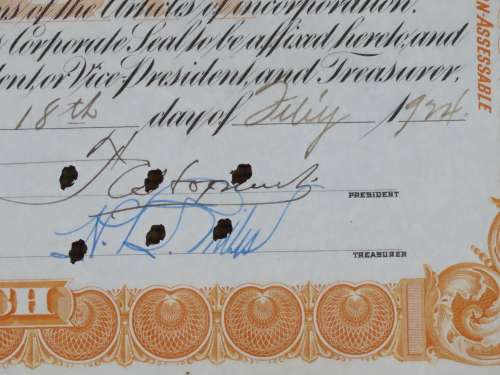 ns of the Articles of incorporation.
Corporate Seal to be affixed hereto, and
dent, or Vice-President, and Treasurer,
18th day of 1924.
PRESIDENT
TREASURER
SH
N-ASSESSABLE